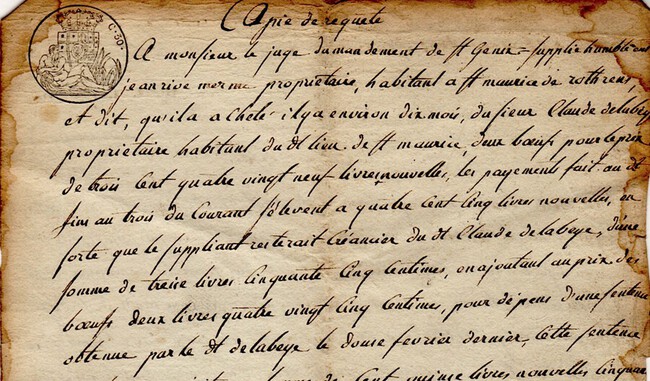 Copie de requete
C. 50.
A monsieur le juge du mandement de St Genix = Supplie humblement
jean rive merme proprietaire, habitant a St maurice de rotherens
et dit, qu'il a achelé il y a environ dix mois, du sieur Claude delabeye
proprietaire habitant du dt lieu de St maurice, deux bœufs pour le prix
de trois Cent quatre vingt neuf livres nouvelles, les payements fait au dt
sieur au trois du Courant s'élevent a quatre cent Cinq livres nouvelles, en
sorte que le suppliant resterait Créancier du dt Claude delabeye, d'une
somme de treise livres Cinquante Cinq Centimes, en ajoutant au prix des
bœufs deux livres quatre vingt Cinq Centimes, pour dépens d'une sentence
obtenue par le dt delabeye le douse fevrier dernier, Cette sentence
de Cent quinse livres nouvelles Cinquan